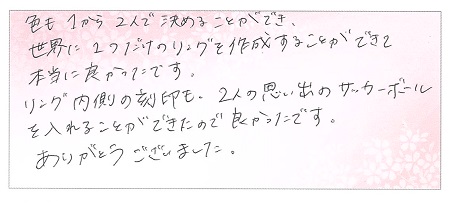 色も1から2人で決めることができ、
世界に1つだけのリングを作成することができて
本当に良かったです。
リング内側の刻印も、2人の思い出のサッカーボール
を入れることができたので良かったです。
ありがとうございました。